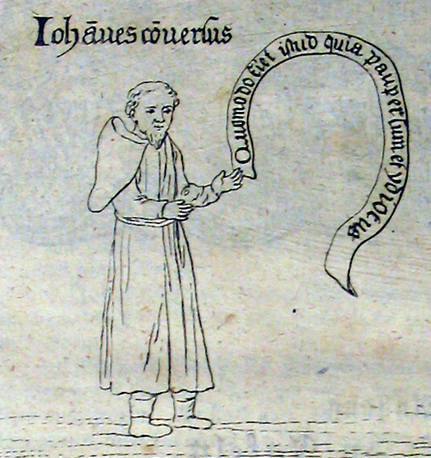 Ioh̄ā̄nes cōuersus
Quomodo fiet istud quia pauper sum et ydiotus